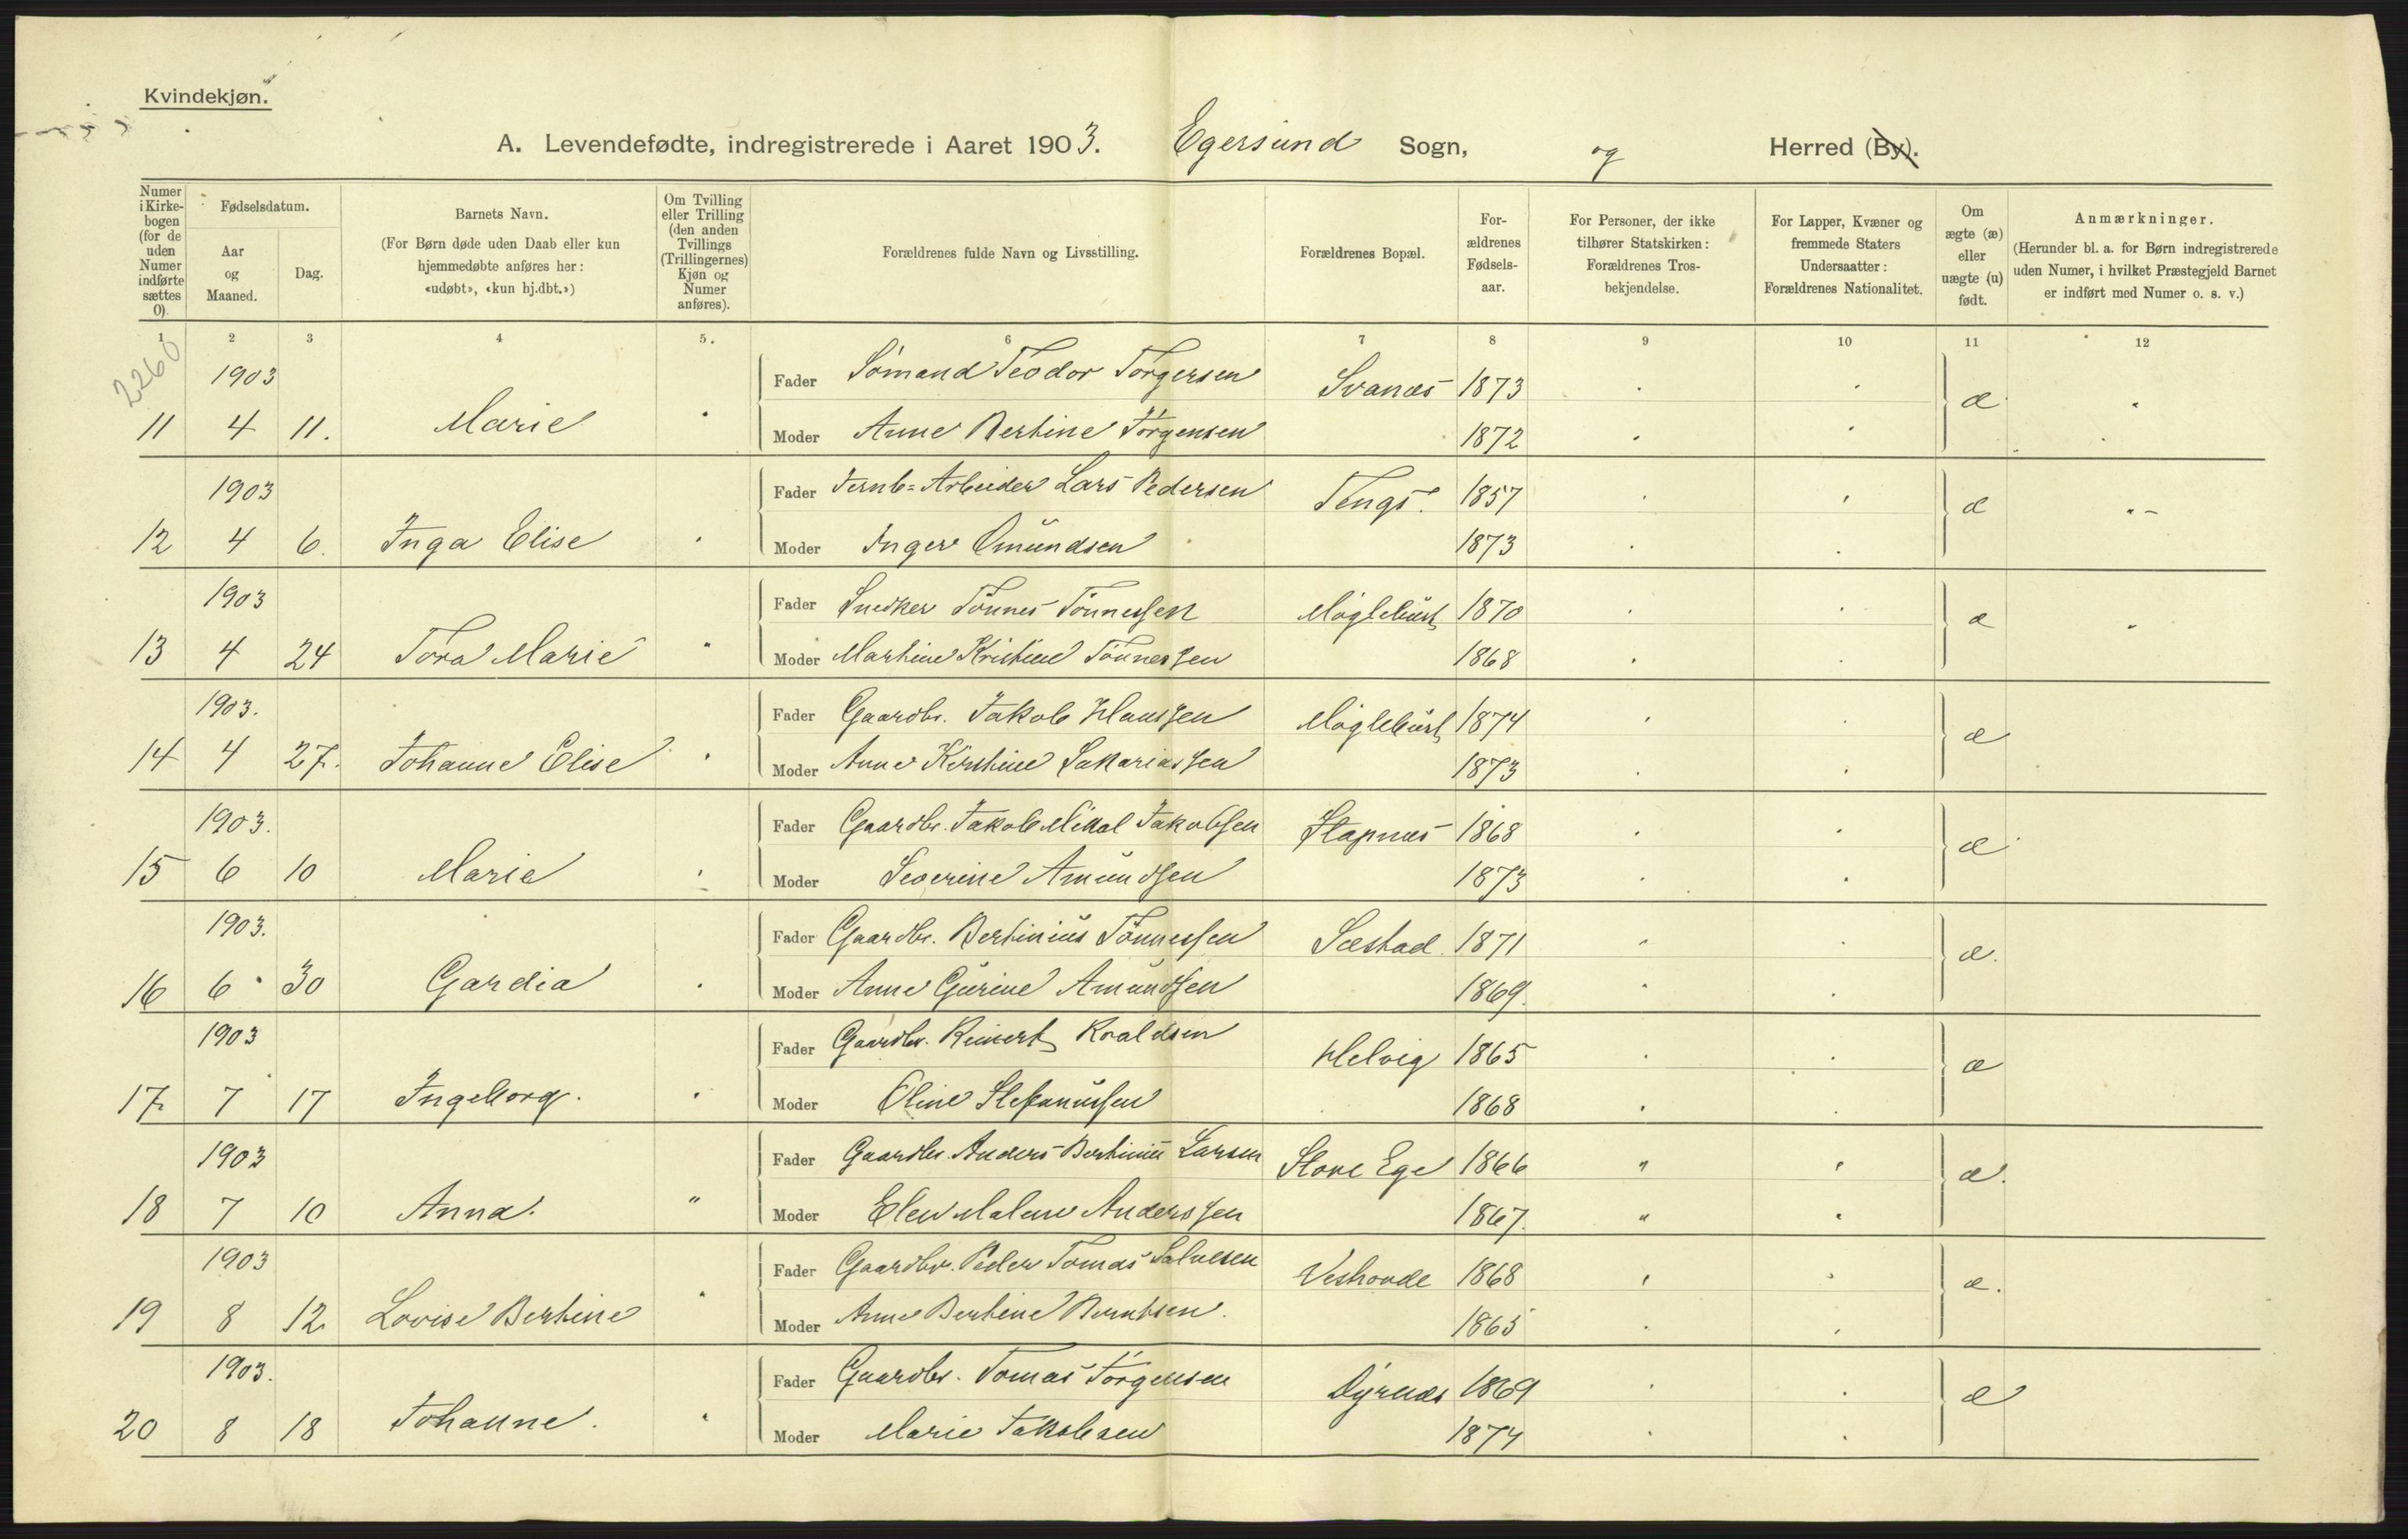 Kvindekjøn.
A. Levendefødte, indregistrerede i Aaret 1903. Egersund Sogn, og Herred (By).
Numer i Kirkebogen (for de uden Numer indførte sættes 0).
Fødselsdatum.
Aar og Maaned.
Dag.
Barnets Navn.
(For Børn døde uden Daab eller kun hjemmedøbte anføres her: «udøbt», «kun hj.dbt.»)
Om Tvilling eller Trilling (den anden Tvillings (Trillingernes) Kjøn og Numer anføres).
Forældrenes fulde Navn og Livsstilling.
Forældrenes Bopæl.
Forældrenes Fødselsaar.
For Personer, der ikke tilhører Statskirken: Forældrenes Trosbekjendelse.
For Lapper, Kvæner og fremmede Staters Undersaatter: Forældrenes Nationalitet.
Om ægte (æ) eller uægte (u) født.
Anmærkninger.
(Herunder bl. a. for Børn indregistrerede uden Numer, i hvilket Præstegjeld Barnet er indført med Numer o. s. v.)
1 2 3 4 5. 6 7 8 9 10 11 12
2260
1903 Fader Sømand Teodor Torgersen Svanæs 1873 æ
11 4 11. Marie Moder Anne Bertine Jørgensen 1872
1903 Fader Jernb=Arbeider Lars Pedersen Tengs. 1857 æ
12 4 6. Inga Elise Moder Inger Omundsen 1873
1903 Fader Snedker Tönnes Tönnessen Møglebust 1870 æ
13 4 24 Tora Marie Moder Martine Kristine Tönnessen 1868
1903. Fader Gaardbr. Jakob Hanssen Møglebust 1874 æ
14 4 27. Johanne Elise Moder Anne Kirstine Sakariassen 1873
1903. Fader Gaardbr. Jakob Mikal Jakobsen Stapnæs 1868 æ
15 6 10 Marie Moder Severine Amundsen 1873
1903. Fader Gaardbr. Bertinius Tönnessen Sæstad. 1871 æ.
16 6 30 Gardia Moder Anne Gurine Amundsen 1869.
1903 Fader Gaardbr. Reinert Roaldsen Helvig 1865 æ
17. 7 17 Ingeborg. Moder Oline Stefanussen 1868
1903 Fader Gaardbr. Anders Bertinius Larsen Store Ege 1866 " æ.
18 7 10 Anna. " Moder Elen Malene Anderssen 1867. "
1903 Fader Gaardbr. Peder Tomas Salvesen Veshovde 1868 æ.
19 8 12. Lovise Bertine Moder Anne Bertine Berntsen. 1865
1903. Fader Gaardbr. Tomas Jörgensen Dyrnæs 1869 æ
20 8 18 Johanne. Moder Marie Jakobsen 1874